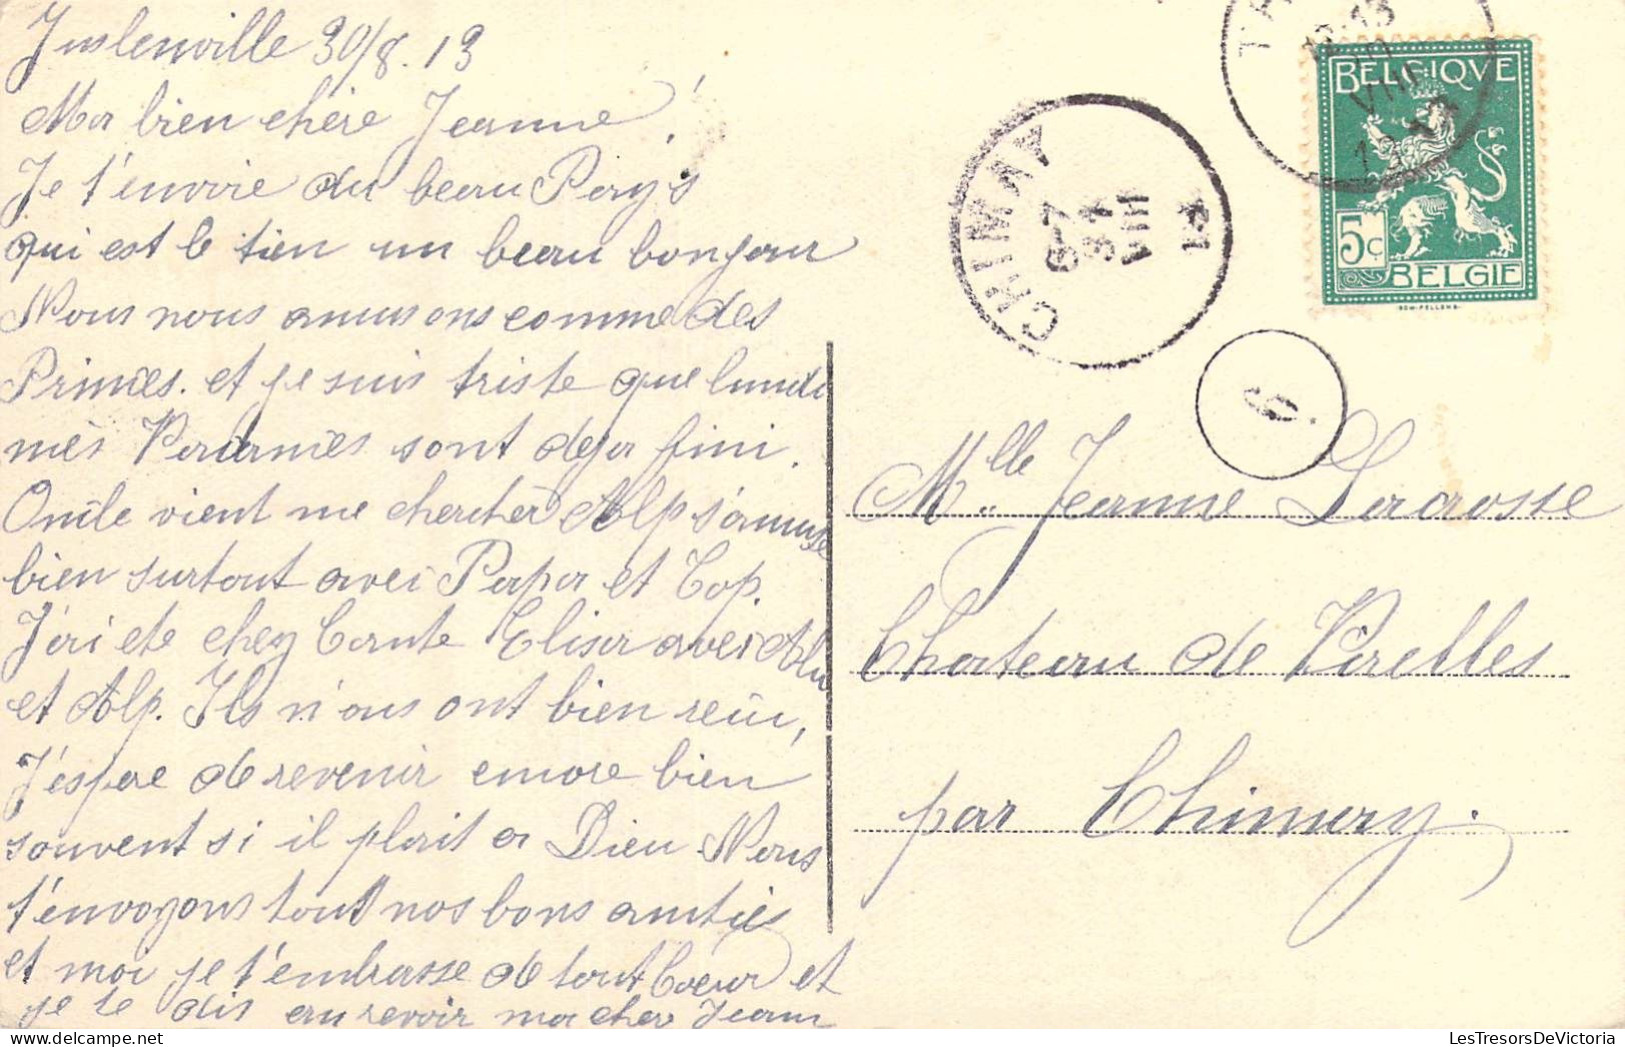 Juslenville 30/8. 13
Ma bien chère Jeanne!
Je t'envoie du beau Pays
qui est le tien un beau bonjour
Nous nous amusons comme des
Princes. et je suis triste que lundi
mes Vacances sont deja fini.
Oncle vient me chercher Alp s'amuse
bien surtout avec Papa et Cop.
J'ai ete chez Tante Elisa avec Alu
et Alp. Ils n'ous ont bien recu,
J'espere de revenir encore bien
souvent si il plait a Dieu Nous
t'envoyons tout nos bons amities
et moi je t'embrasse de tout Coeur et
je te dis au revoir ma cher Jeann
CHIMAY
6-7
31
VIII
12-13
VIII
13
BELGIQUE
5c
BELGIE
6
Mlle Jeanne Lacrosse
Chateau de Virelles
par Chimay.
LesTresorsDeVictoria.com